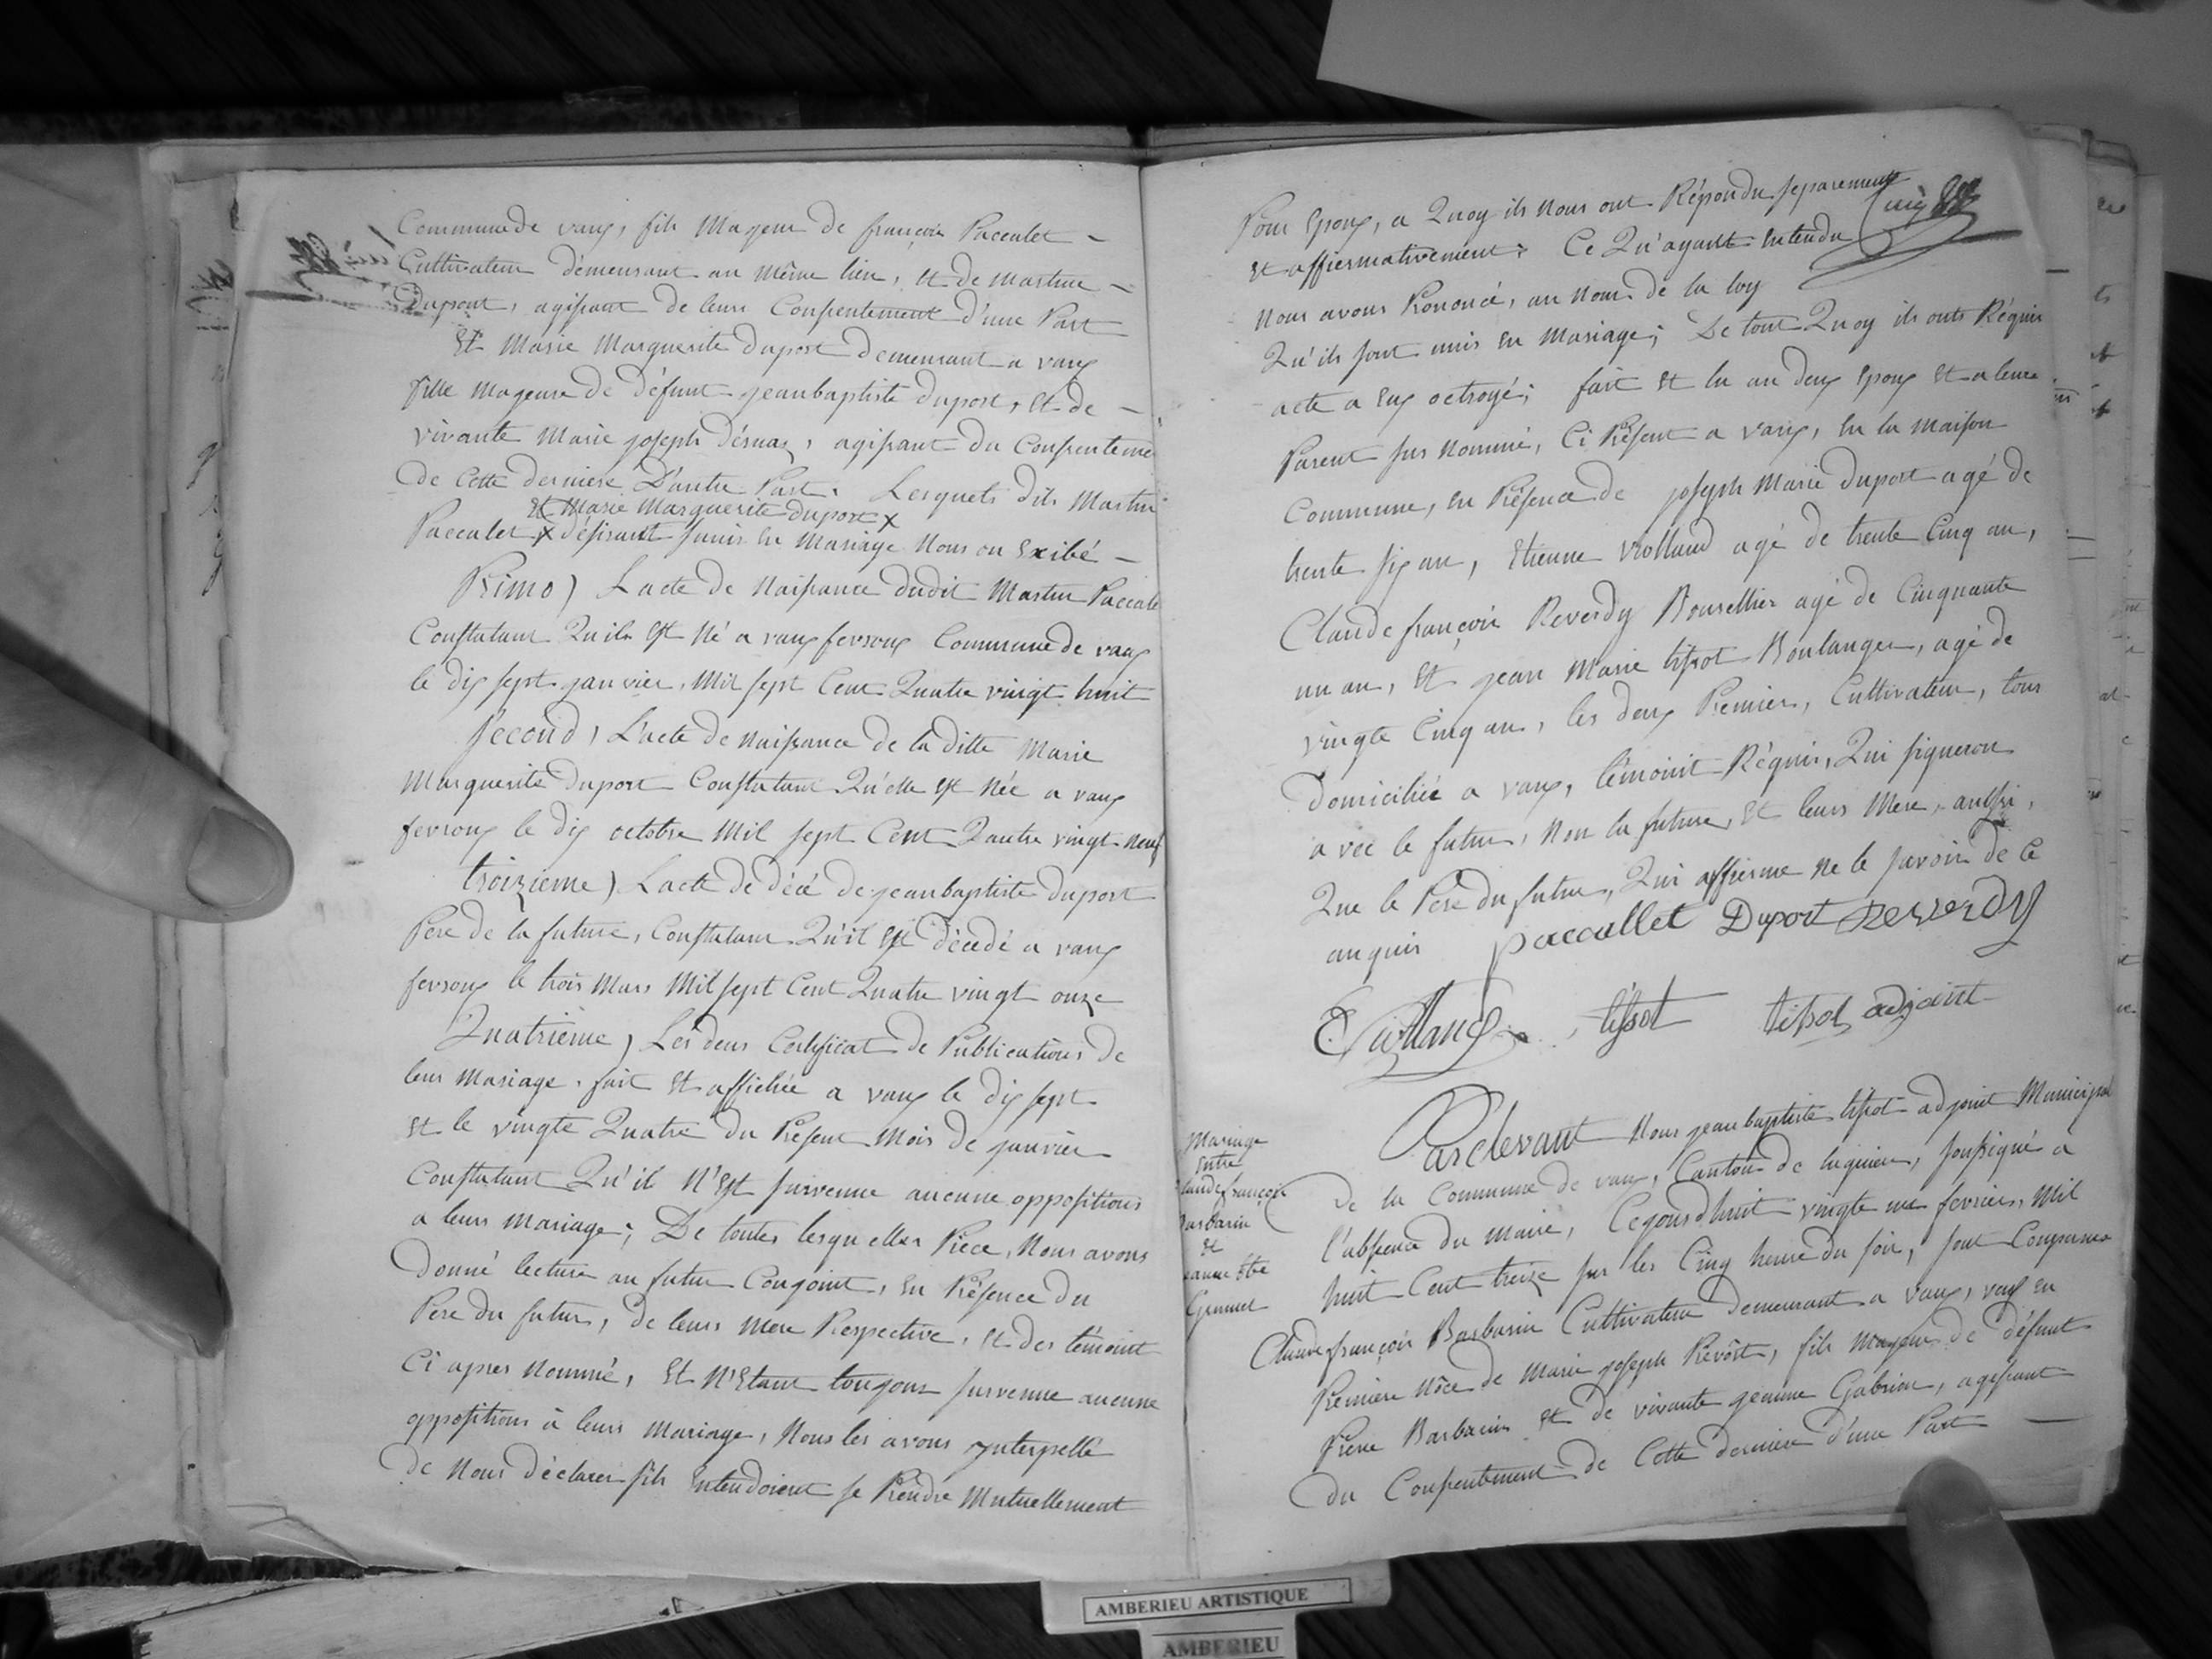 Commune de vaux, fils Majeur de françois Paccalet
Cultivateur démeurant au même lieu, et de martine
Duport, agissant de leurs Consentement d'une Part
Et Marie Marguerite duport demeurant a vaux
fille Majeure de défunt jeanbaptiste duport, et de
vivante Marie joseph désuaz, agissant du Consenteme
de Cette derniere D'autre Part. Lesquels dits Martin
et Marie Marguerite duport x
Paccalet x désirant sunir en Mariage Nous on Exibé
Primo) Lacte de Naissance dudit Martin Paccale
Constatant Quil Est Né a vaux fevroux Commune de vaux
le dix sept janvier, Mil sept Cent Quatre vingt huit
Second, L'acte de Naissance de la ditte Marie
Marguerite duport Constatant Qu'elle Est Née a vaux
fevroux le dix octobre Mil sept Cent Quatre vingt neuf
troizieme) Lacte de décé de jeanbaptiste duport
Pere de la future, Constatant Qu'il Est décedé a vaux
fevroux le trois Mars Mil sept Cent Quatre vingt onze
Quatrième, Les deux Certificat de Publications de
leur Mariage, fait Et affichée a vaux le dix sept
Et le vingte Quatre du Present Mois de janvier
Constatant Qu'il N'Est survenue aucune oppositions
a leurs Mariage; De toutes lesquelles Piece, Nous avons
donné lecture au futur Conjoint, en Présence du
Pere du futur, de leurs Mere Respective, et des témoint
Ci apres Nommé, Et N'Etant toujour survenue aucune
oppositions à leurs Mariage, Nous les avons ynterpellé
de Nous déclarer sils Entendoient se Prendre Mutuellement
Pour Epoux, a Quoy ils Nous ont Répondu separement
Et affirmativement; Ce Qu'ayant Entendu
Nous avons Prononcé, au Nom de la loy
Qu'ils sont unis en Mariage; De tout Quoy ils onts Réquis
acte a Eux octroyé; fait Et lu au deux Epoux Et a leurs
Parent sus Nommé, Ci Présent a vaux, en la Maison
Commune, en Présence de joseph Marie duport agé de
trente six an, Etienne Vrolland agé de trente Cinq an,
Claude françois Reverdy Bourellier agé de Cinquante
un an, Et jean Marie tissot Boulanger, agé de
vingte Cinq an, les deux Premiers, Cultivateur, tous
domiciliée a vaux, témoint Réquis, Qui signeron
avec le futur, Non la future, Et leurs Mere, aussi,
Que le Pere du futur, Qui affirme Ne le savoir de Ce
anquis paccallet Duport Reverdy
tissot tissot adjoint
Mariage
Entre
laude françois
Barbarin
Et
eanne
Grumet
Pardevant Nous jeanbaptiste tissot adjoint Municipal
de la Commune de vaux, Canton de lagnieu, soussigné a
l'absence du Maire, Cejourdhuit vingte un fevrier, Mil
huit Cent treize sur les Cinq heure du soir, sont Comparus
Claude françois Barbarin Cultivateur demeurant a vaux, veuf en
Premiere Nôce de Marie joseph Revôst, fils Majeur de défunt
Pierre Barbarin Et de vivante jeanne Gabrion, agissant
du Consentement de Cette derniere d'une Part
AMBERIEU ARTISTIQUE
AMBERIEU